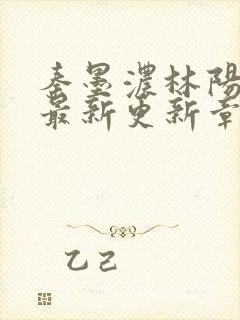 秦墨濃林陽
最新更新章
乙己